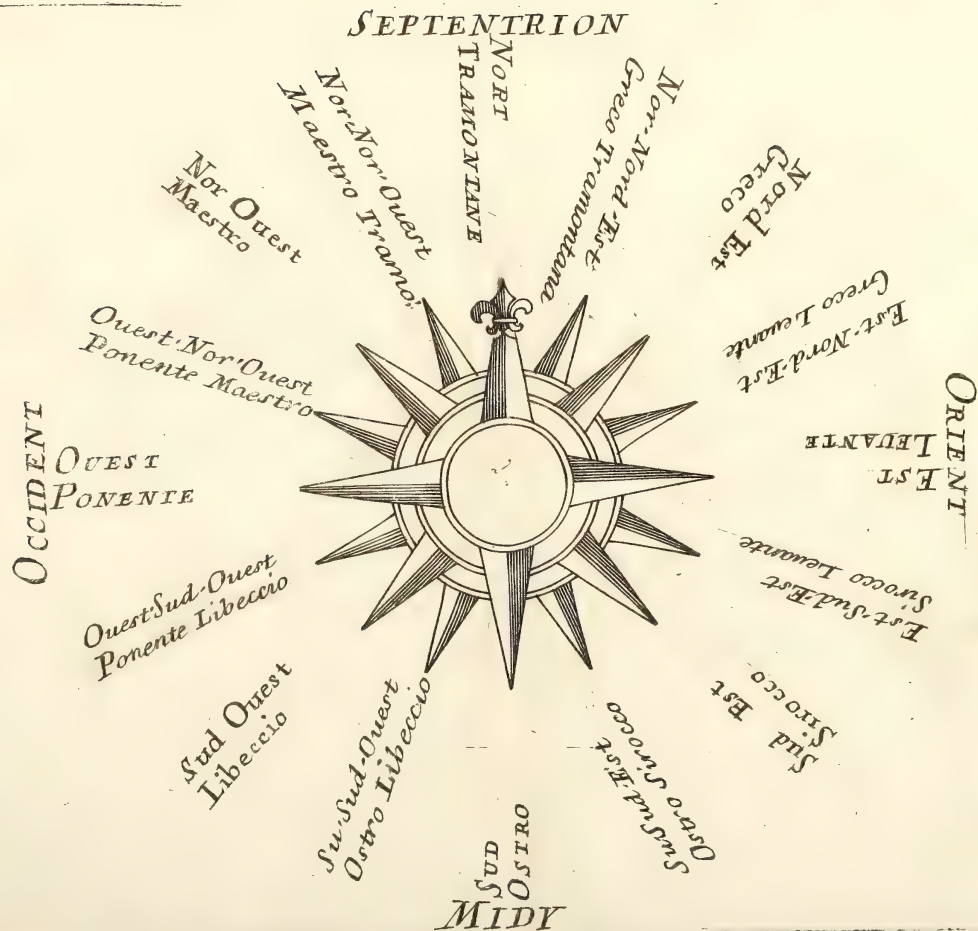 SEPTENTRION
NORT
TRAMONTANE
Nor-Nord-Est
Greco Tramontana
Nord Est
Greco
Est-Nord-Est
Greco Leuante
ORIENT
EST
LEUANTE
Est-Sud-Est
Sirocco Leuante
Sud Est
Sirocco
SuSud-Est
Ostro Sirocco
SUD
OSTRO
MIDY
Su-Sud-Ouest
Ostro Libeccio
Sud Ouest
Libeccio
Ouest-Sud-Ouest
Ponente Libeccio
OCCIDENT
OUEST
PONENTE
Ouest-Nor-Ouest
Ponente Maestro
Nor Ouest
Maestro
Nor-Nor-Ouest
Maestro Tramo: